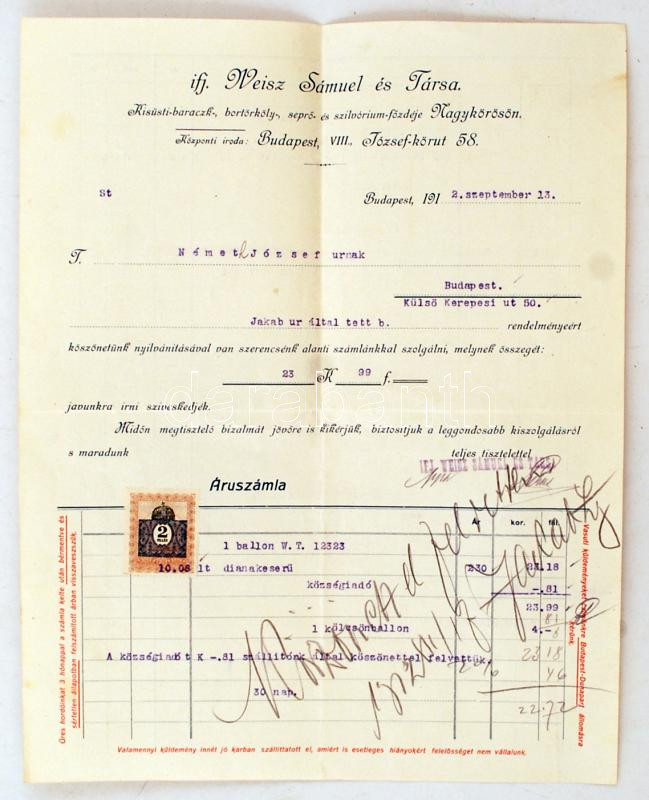 ifj. Weisz Sámuel és Társa.
Kisüsti-baraczk-, bortörköly-, seprő- és szilvórium-főzdéje Nagykőrösön.
Központi iroda: Budapest, VIII., József-körut 58.
St
Budapest, 191 2.szeptember 13.
T. Németh József urnak
Budapest.
Külső Kerepesi ut 50.
Jakab ur által tett b. rendelményeért
köszönetünk nyilvánitásával van szerencsénk alanti számlánkkal szolgálni, melynek összegét:
23 K 99 f.
javunkra irni sziveskedjék.
Midőn megtisztelő bizalmát jövőre is kikérjük, biztositjuk a leggondosabb kiszolgálásról
s maradunk teljes tisztelettel
IFJ. WEISZ SÁMUEL ÉS TÁRSA
Áruszámla
Ár kor. fill.
2
1 ballon W.T. 12323
10.08 lt dianakeserü 230 23.18
községiadó -.81
23.99
1 kölcsönballon 4.-
81
A községiadót K -.81 szállitónk által köszönettel felvettük.
23 18
2% 46
30 nap.
22.72
Üres hordóinkat 3 hónappal a számla kelte után bérmentve és
sértetlen állapotban felszámitott árban visszaveszszük.
Vasuti küldeményeket Budapest-Dunapart állomásra
kérünk.
Valamennyi küldemény innét jó karban szállittatott el, amiért is esetleges hiányokért felelősséget nem vállalunk.
darabanth